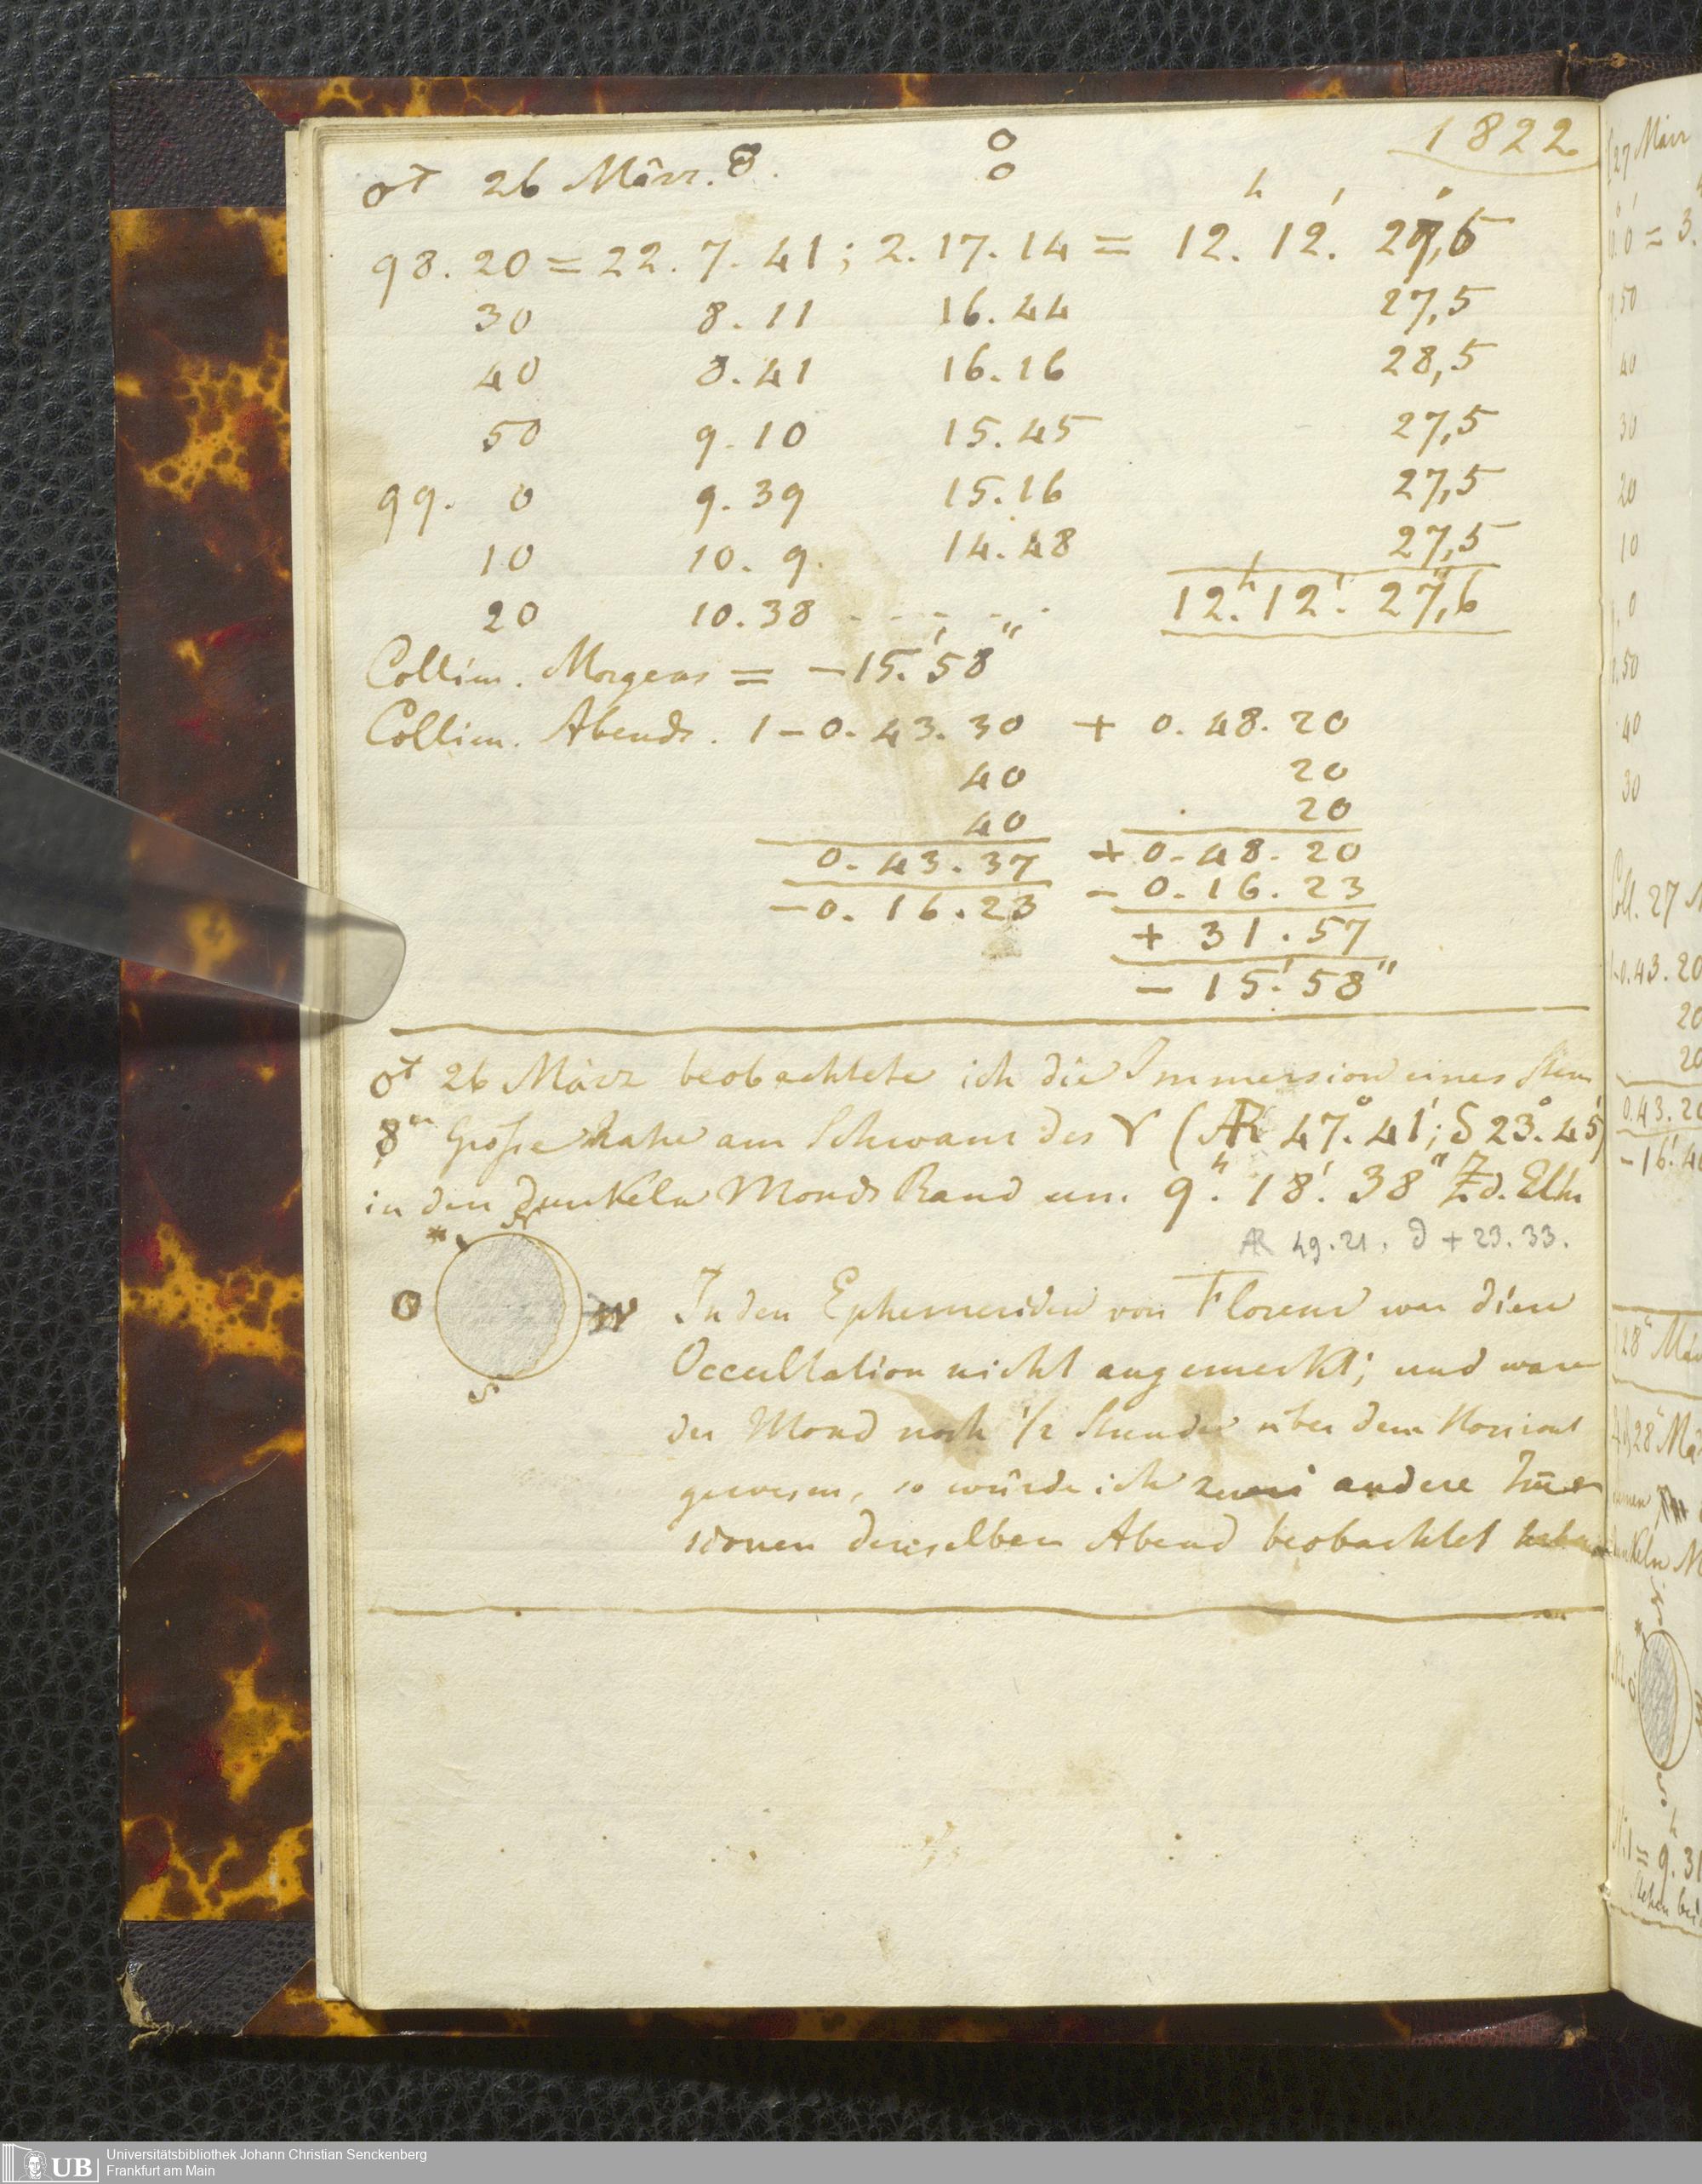 1822
♂ 26 März.
h ′ ″
98.20 = 22. 7. 41; 2. 17. 14 = 12. 12. 27,5
30 8. 11 16. 44 27,5
40 8. 41 16. 16 28,5
50 9. 10 15. 45 27,5
99. 0 9. 39 15. 16 27,5
10 10. 9. 14. 48 27,5
20 10. 38 - - - - - 12.h 12′. 27,″6
Collim. Morgens = - 15.′ 58″
Collim. Abends. 1 - 0. 43. 30 + 0. 48. 20
40 20
40 20
0. 43. 37 + 0. 48. 20
- 0. 16. 23 - 0. 16. 23
+ 31. 57
- 15.′ 58″
♂ 26 März beobachtete ich die Immersion eines Stern
8er Große nahe am Schwanz des ♈ (AR 47.° 41′; δ 23.° 45′)
in den dunkeln Monds Rand um. 9h. 18′. 38″ Z. d. Elh
AR 49. 21. d + 23. 33.
* N
O W
S
In den Ephemeriden von Florenz war diese
Occultation nicht angemerkt; und ware
der Mond noch 1/2 Stunde über dem Horizont
gewesen, so würde ich zwei andere Im̄er
sionen denselben Abend beobachtet haben
27 März
0.0 = 3.
50
40
30
20
10
0
50
40
30
Coll. 27
-0.43. 20
20
20
0.43. 20
- 16′. 40
28 Mär
28 Mä
dunkeln M
*
= 9. 31
Universitätsbibliothek Johann Christian Senckenberg
UB Frankfurt am Main